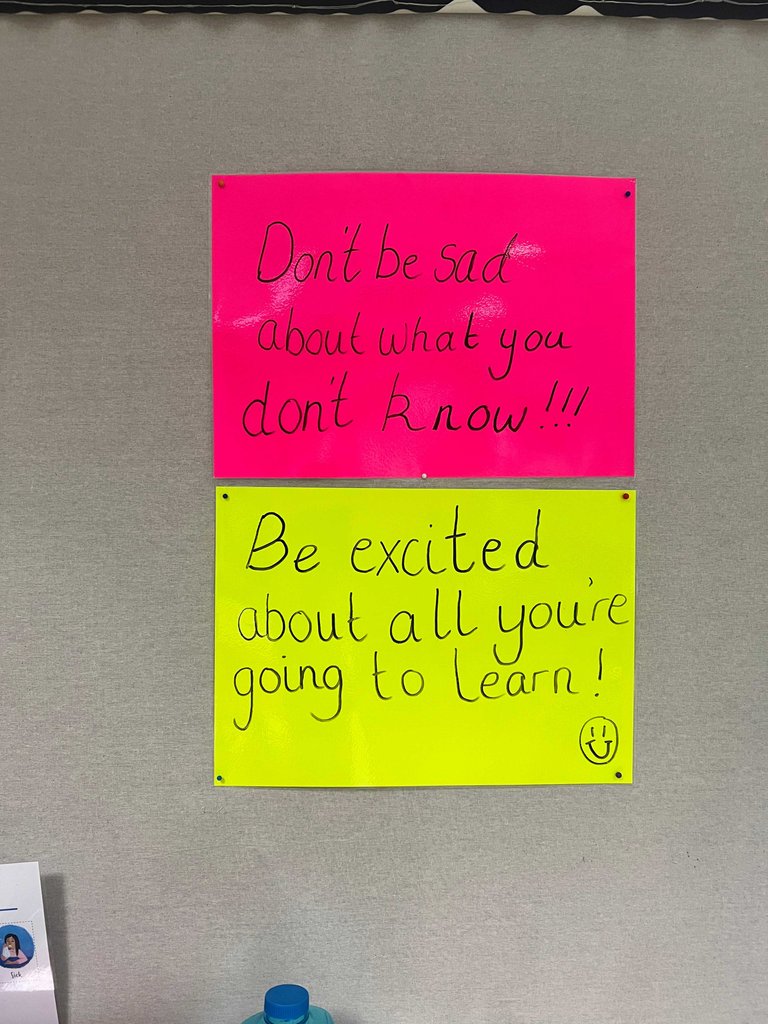 Don't be sad
about what you
don't know!!!
Be excited
about all you're
going to learn!
Sick